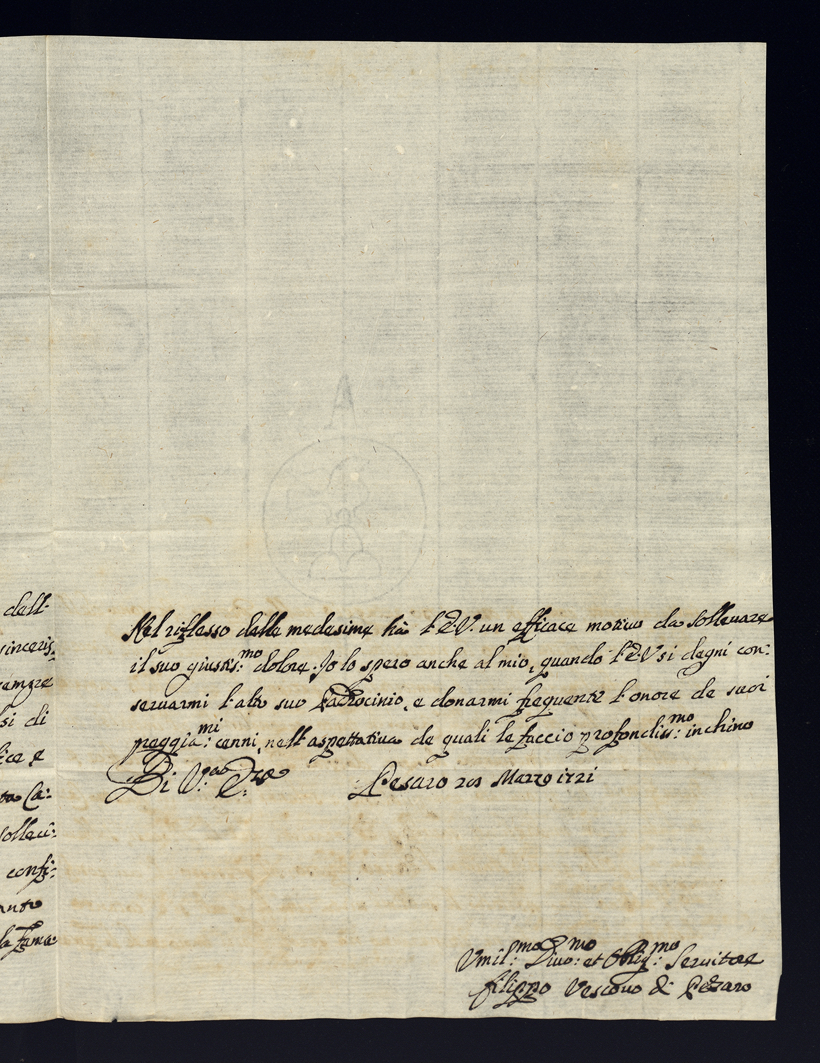 dell'
sinceris:
sempre
si di
lice e
ta Ca:
sollecì:
confi:
la fama
Nel riflesso delle medesime hà l'E.V. un efficace motivo da sollevare
il suo giustis:mo dolore. Io lo spero anche al mio, quando l'E.V. si degni con:
servarmi l'alto suo Padrocinio, e donarmi frequente l'onore de suoi
preggia:mi cenni, nell'aspettativa de quali le faccio profondiss:mo inchino
Di V.ra E.
Pesaro 20 Marzo 1721
A
Umil:mo Divo:mo et Oblig:mo Servitore
filippo Vescovo di Pesaro